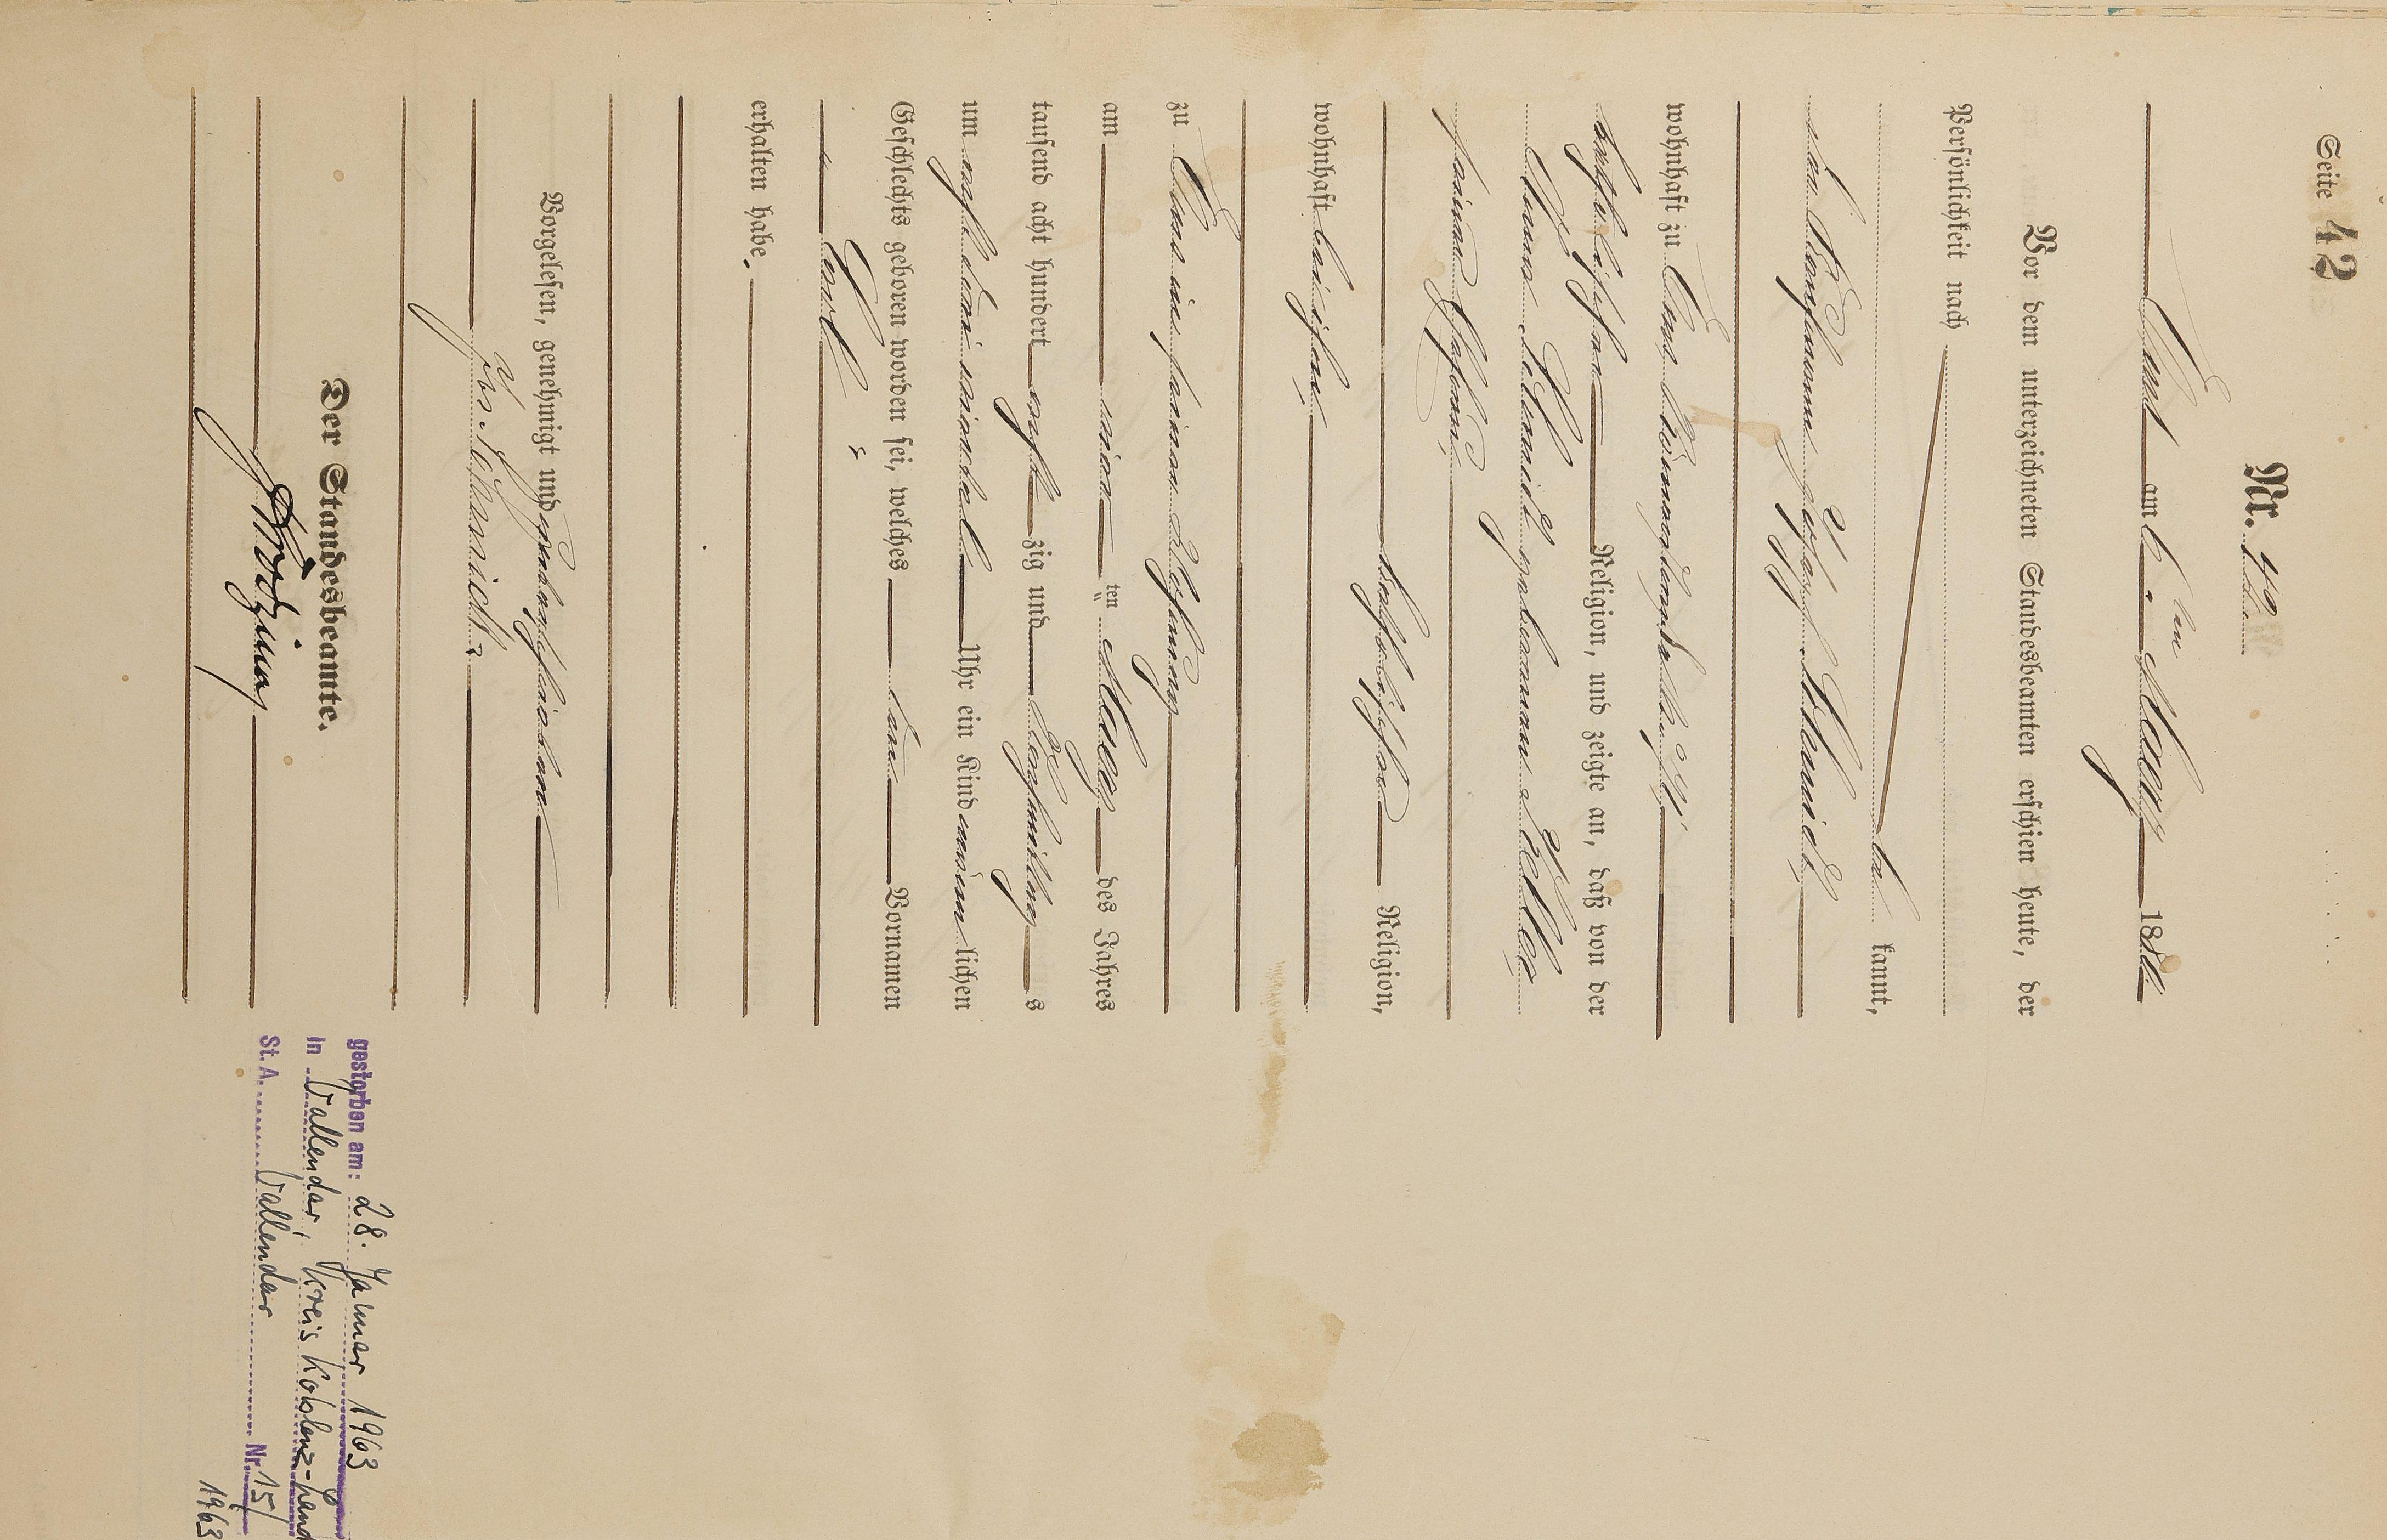 Seite 42
Nr. 42.
am 6ten 188
Vor dem unterzeichneten Standesbeamten erschien heute, der
Persönlichkeit nach
be kannt,
der Kaufmann Joseph Schmidt,
wohnhaft zu Ems
katholischer Religion, und zeigte an, daß von der
Anna Schmidt geborenen
seiner Ehefrau,
katholischer Religion,
wohnhaft bei ihm,
zu Ems in seiner Wohnung
am ten des Jahres
tausend acht hundert acht zig und Nachmittags
um Uhr ein Kind männlichen
Geschlechts geboren worden sei, welches den Vornamen
Carl
erhalten habe.
Vorgelesen, genehmigt und unterschrieben
Jos. Schmidt
Der Standesbeamte.
gestorben am: 28. Januar 1963
in Vallendar, Kreis Koblenz-Land
St. A. Vallendar Nr. 15/
1963